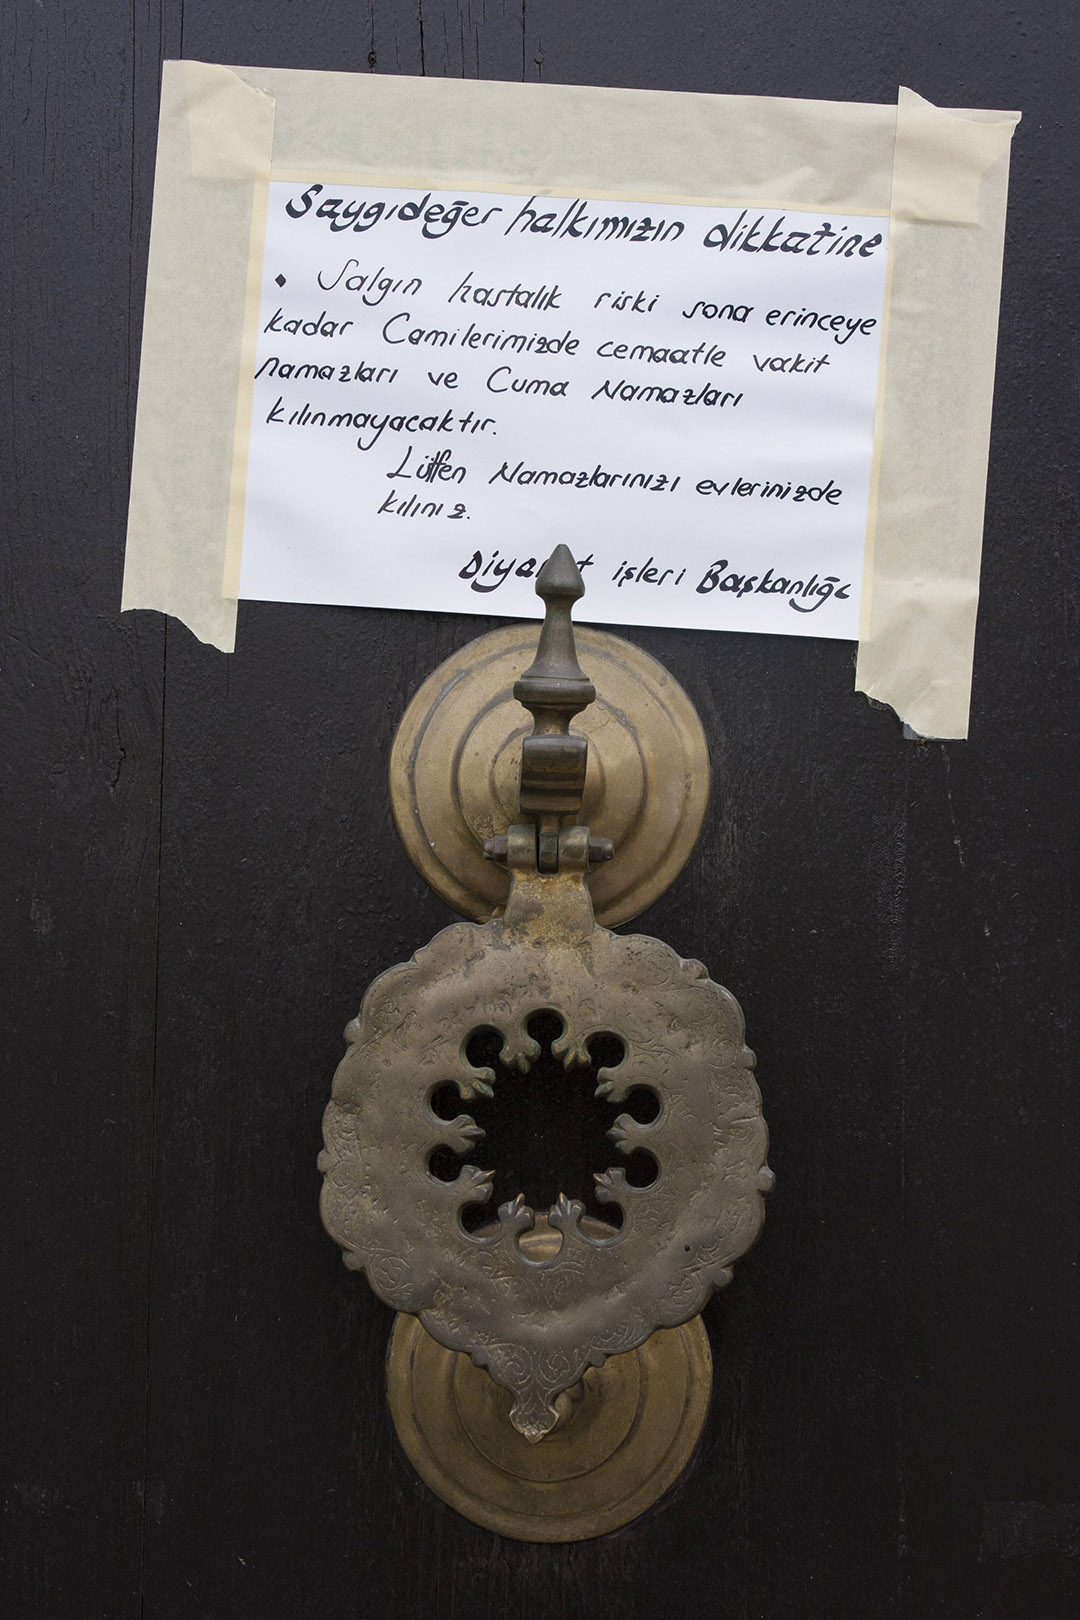 Saygıdeğer halkımızın dikkatine
• Salgın hastalık riski sona erinceye
kadar Camilerimizde cemaatle vakit
namazları ve Cuma Namazları
kılınmayacaktır.
Lütfen Namazlarınızı evlerinizde
kılınız.
Diyanet işleri Başkanlığı